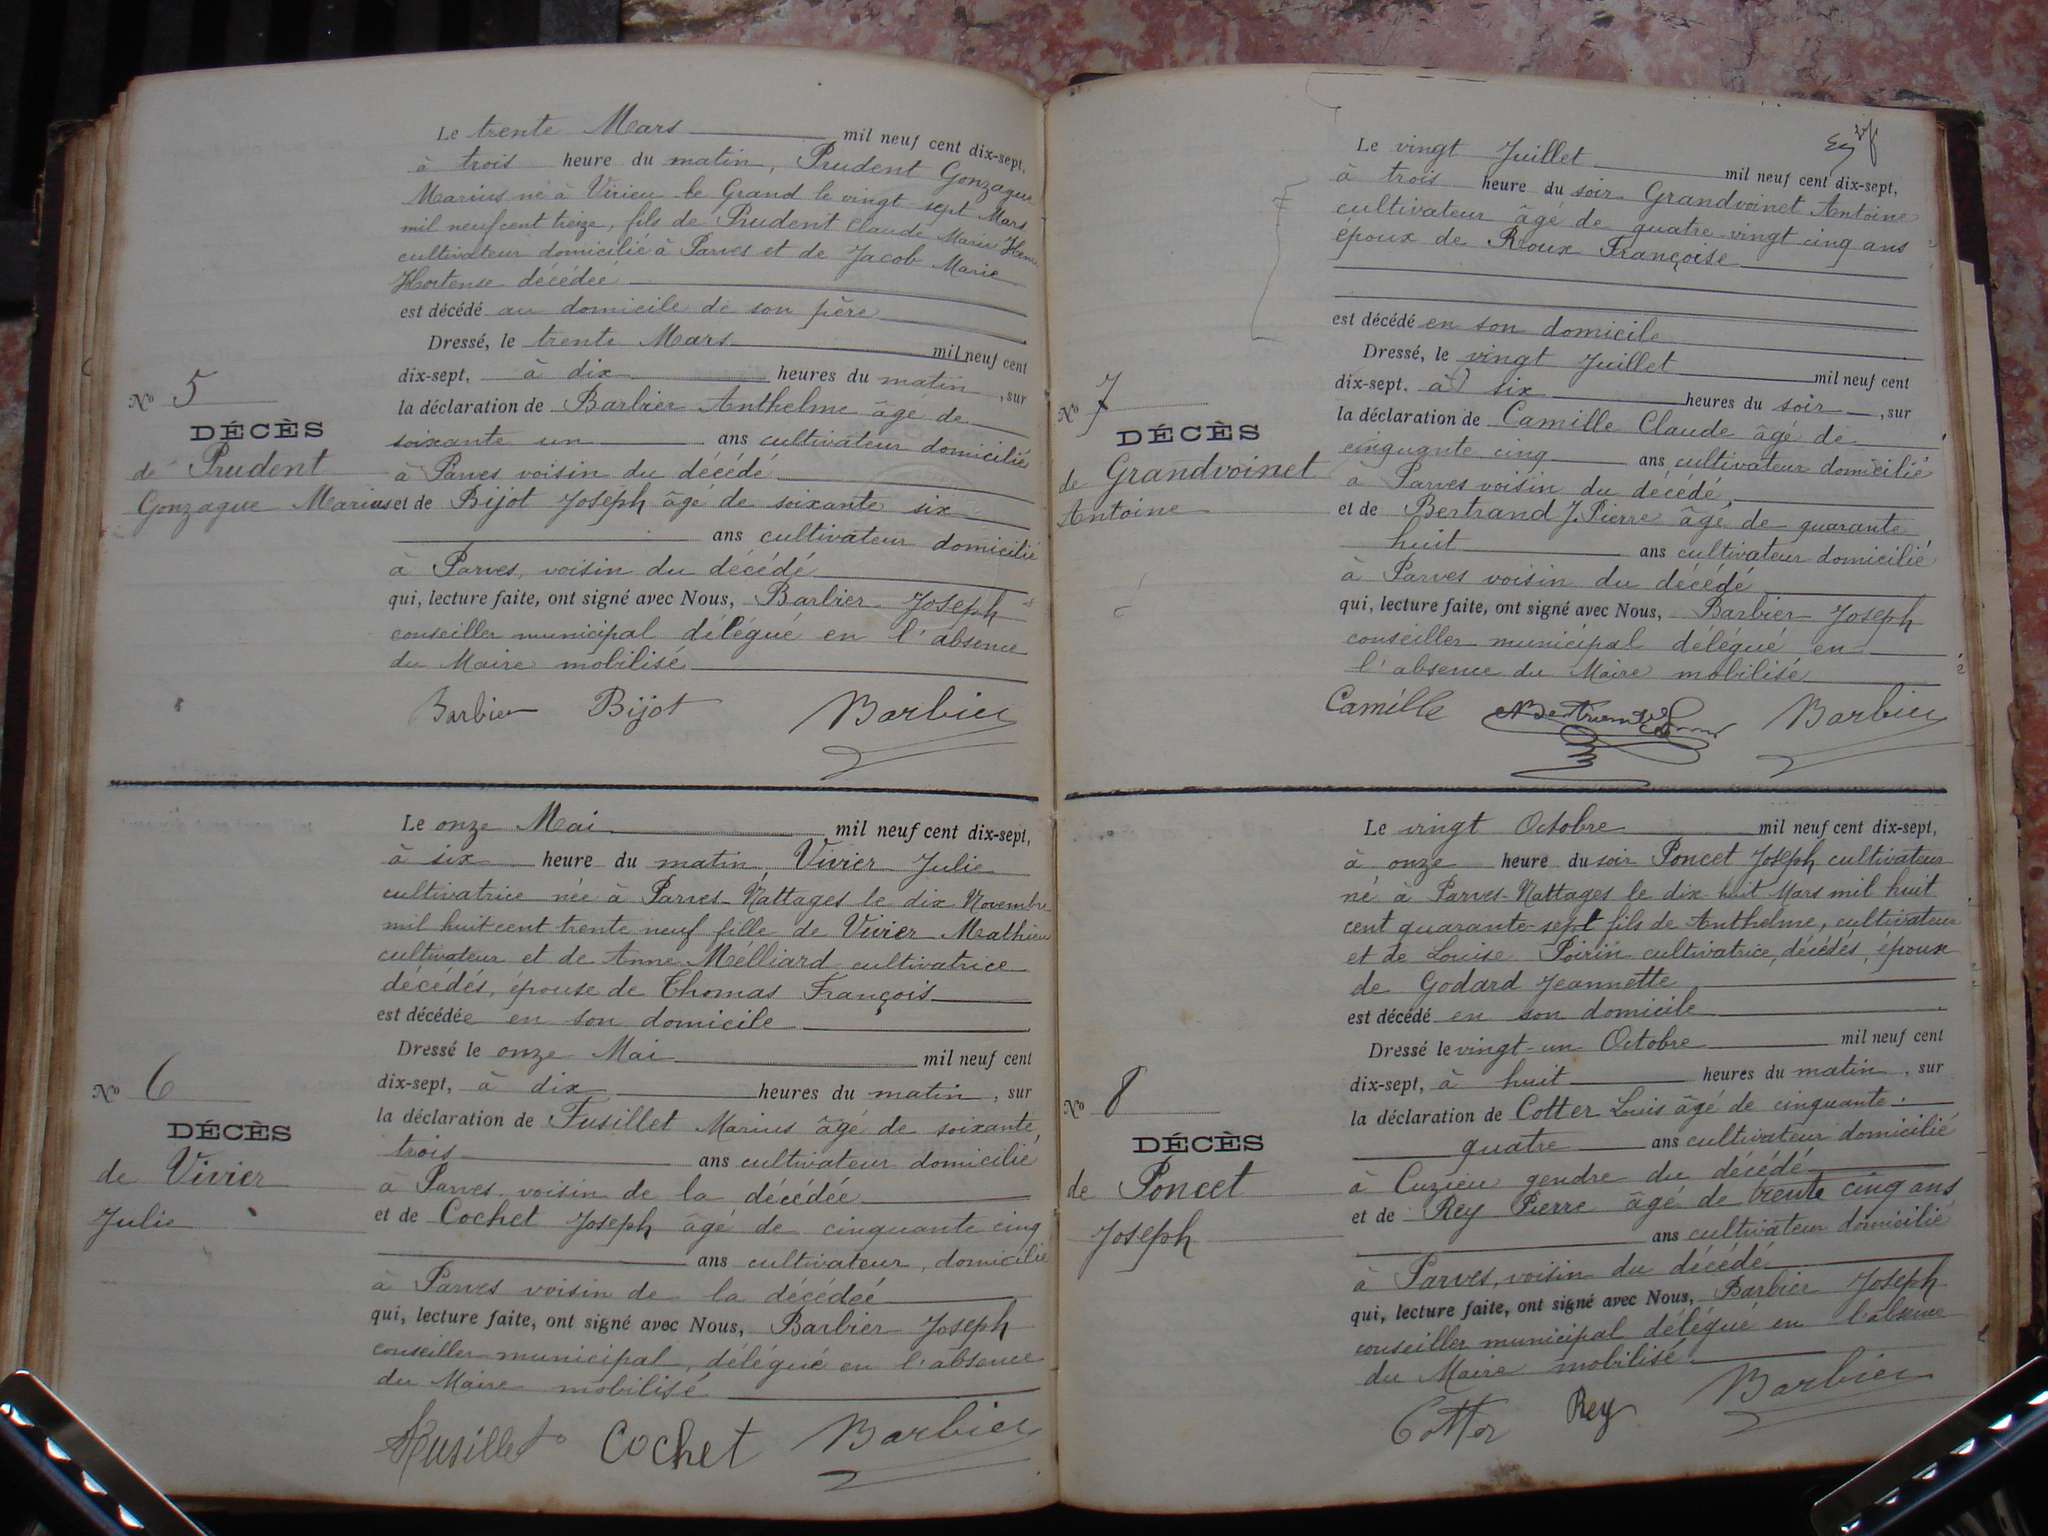 Le trente Mars mil neuf cent dix-sept,
à trois heure du matin, Prudent Gonzague
Marius né à Virieu le Grand le vingt sept Mars
mil neuf cent treize, fils de Prudent Claude Marie
cultivateur domicilié à Parves et de Jacob Marie
Hortense décédée
est décédé au domicile de son père
Dressé, le trente Mars mil neuf cent
dix-sept, à dix heures du matin, sur
la déclaration de Barbier Anthelme âgé de
soixante un ans cultivateur domicilié
à Parves voisin du décédé
et de Bijot Joseph âgé de soixante six
ans cultivateur domicilié
à Parves, voisin du décédé
qui, lecture faite, ont signé avec Nous, Barbier Joseph
conseiller municipal délégué en l'absence
du Maire mobilisé
Barbier Bijot Barbier
No 5
DÉCÈS
de Prudent
Gonzague Marius
Le onze Mai mil neuf cent dix-sept,
à six heure du matin, Vivier Julie
cultivatrice née à Parves-Nattages le dix Novembre
mil huit cent trente neuf fille de Vivier Mathieu
cultivateur et de Anne Mélliard cultivatrice
décédés, épouse de Thomas François
est décédée en son domicile
Dressé le onze Mai mil neuf cent
dix-sept, à dix heures du matin, sur
la déclaration de Fusillet Marius âgé de soixante
trois ans cultivateur domicilié
à Parves, voisin de la décédée
et de Cochet Joseph âgé de cinquante cinq
ans cultivateur, domicilié
à Parves voisin de la décédée
qui, lecture faite, ont signé avec Nous, Barbier Joseph
conseiller municipal, délégué en l'absence
du Maire mobilisé
Fusillet Cochet Barbier
No 6
DÉCÈS
de Vivier
Julie
Le vingt Juillet mil neuf cent dix-sept,
à trois heure du soir Grandvoinet Antoine
cultivateur âgé de quatre-vingt cinq ans
époux de Rioux Françoise
est décédé en son domicile
Dressé, le vingt Juillet mil neuf cent
dix-sept. à six heures du soir, sur
la déclaration de Camille Claude âgé de
cinquante cinq ans cultivateur domicilié
à Parves voisin du décédé,
et de Bertrand J. Pierre âgé de quarante
huit ans cultivateur domicilié
à Parves voisin du décédé
qui, lecture faite, ont signé avec Nous, Barbier Joseph
conseiller municipal délégué en
l'absence du Maire mobilisé
Camille Barbier
No 7
DÉCÈS
de Grandvoinet
Antoine
Le vingt Octobre mil neuf cent dix-sept,
à onze heure du soir Poncet Joseph cultivateur
né à Parves-Nattages le dix huit Mars mil huit
cent quarante-sept fils de Anthelme, cultivateur
et de Louise Poirin cultivatrice, décédés, époux
de Godard Jeannette
est décédé en son domicile
Dressé le vingt-un Octobre mil neuf cent
dix-sept, à huit heures du matin, sur
la déclaration de Cotter Louis âgé de cinquante
quatre ans cultivateur domicilié
à Cuzieu gendre du décédé
et de Rey Pierre âgé de trente cinq ans
ans cultivateur domicilié
à Parves, voisin du décédé
qui, lecture faite, ont signé avec Nous, Barbier Joseph
conseiller municipal délégué en l'absence
du Maire mobilisé
Cotter Rey Barbier
No 8
DÉCÈS
de Poncet
Joseph